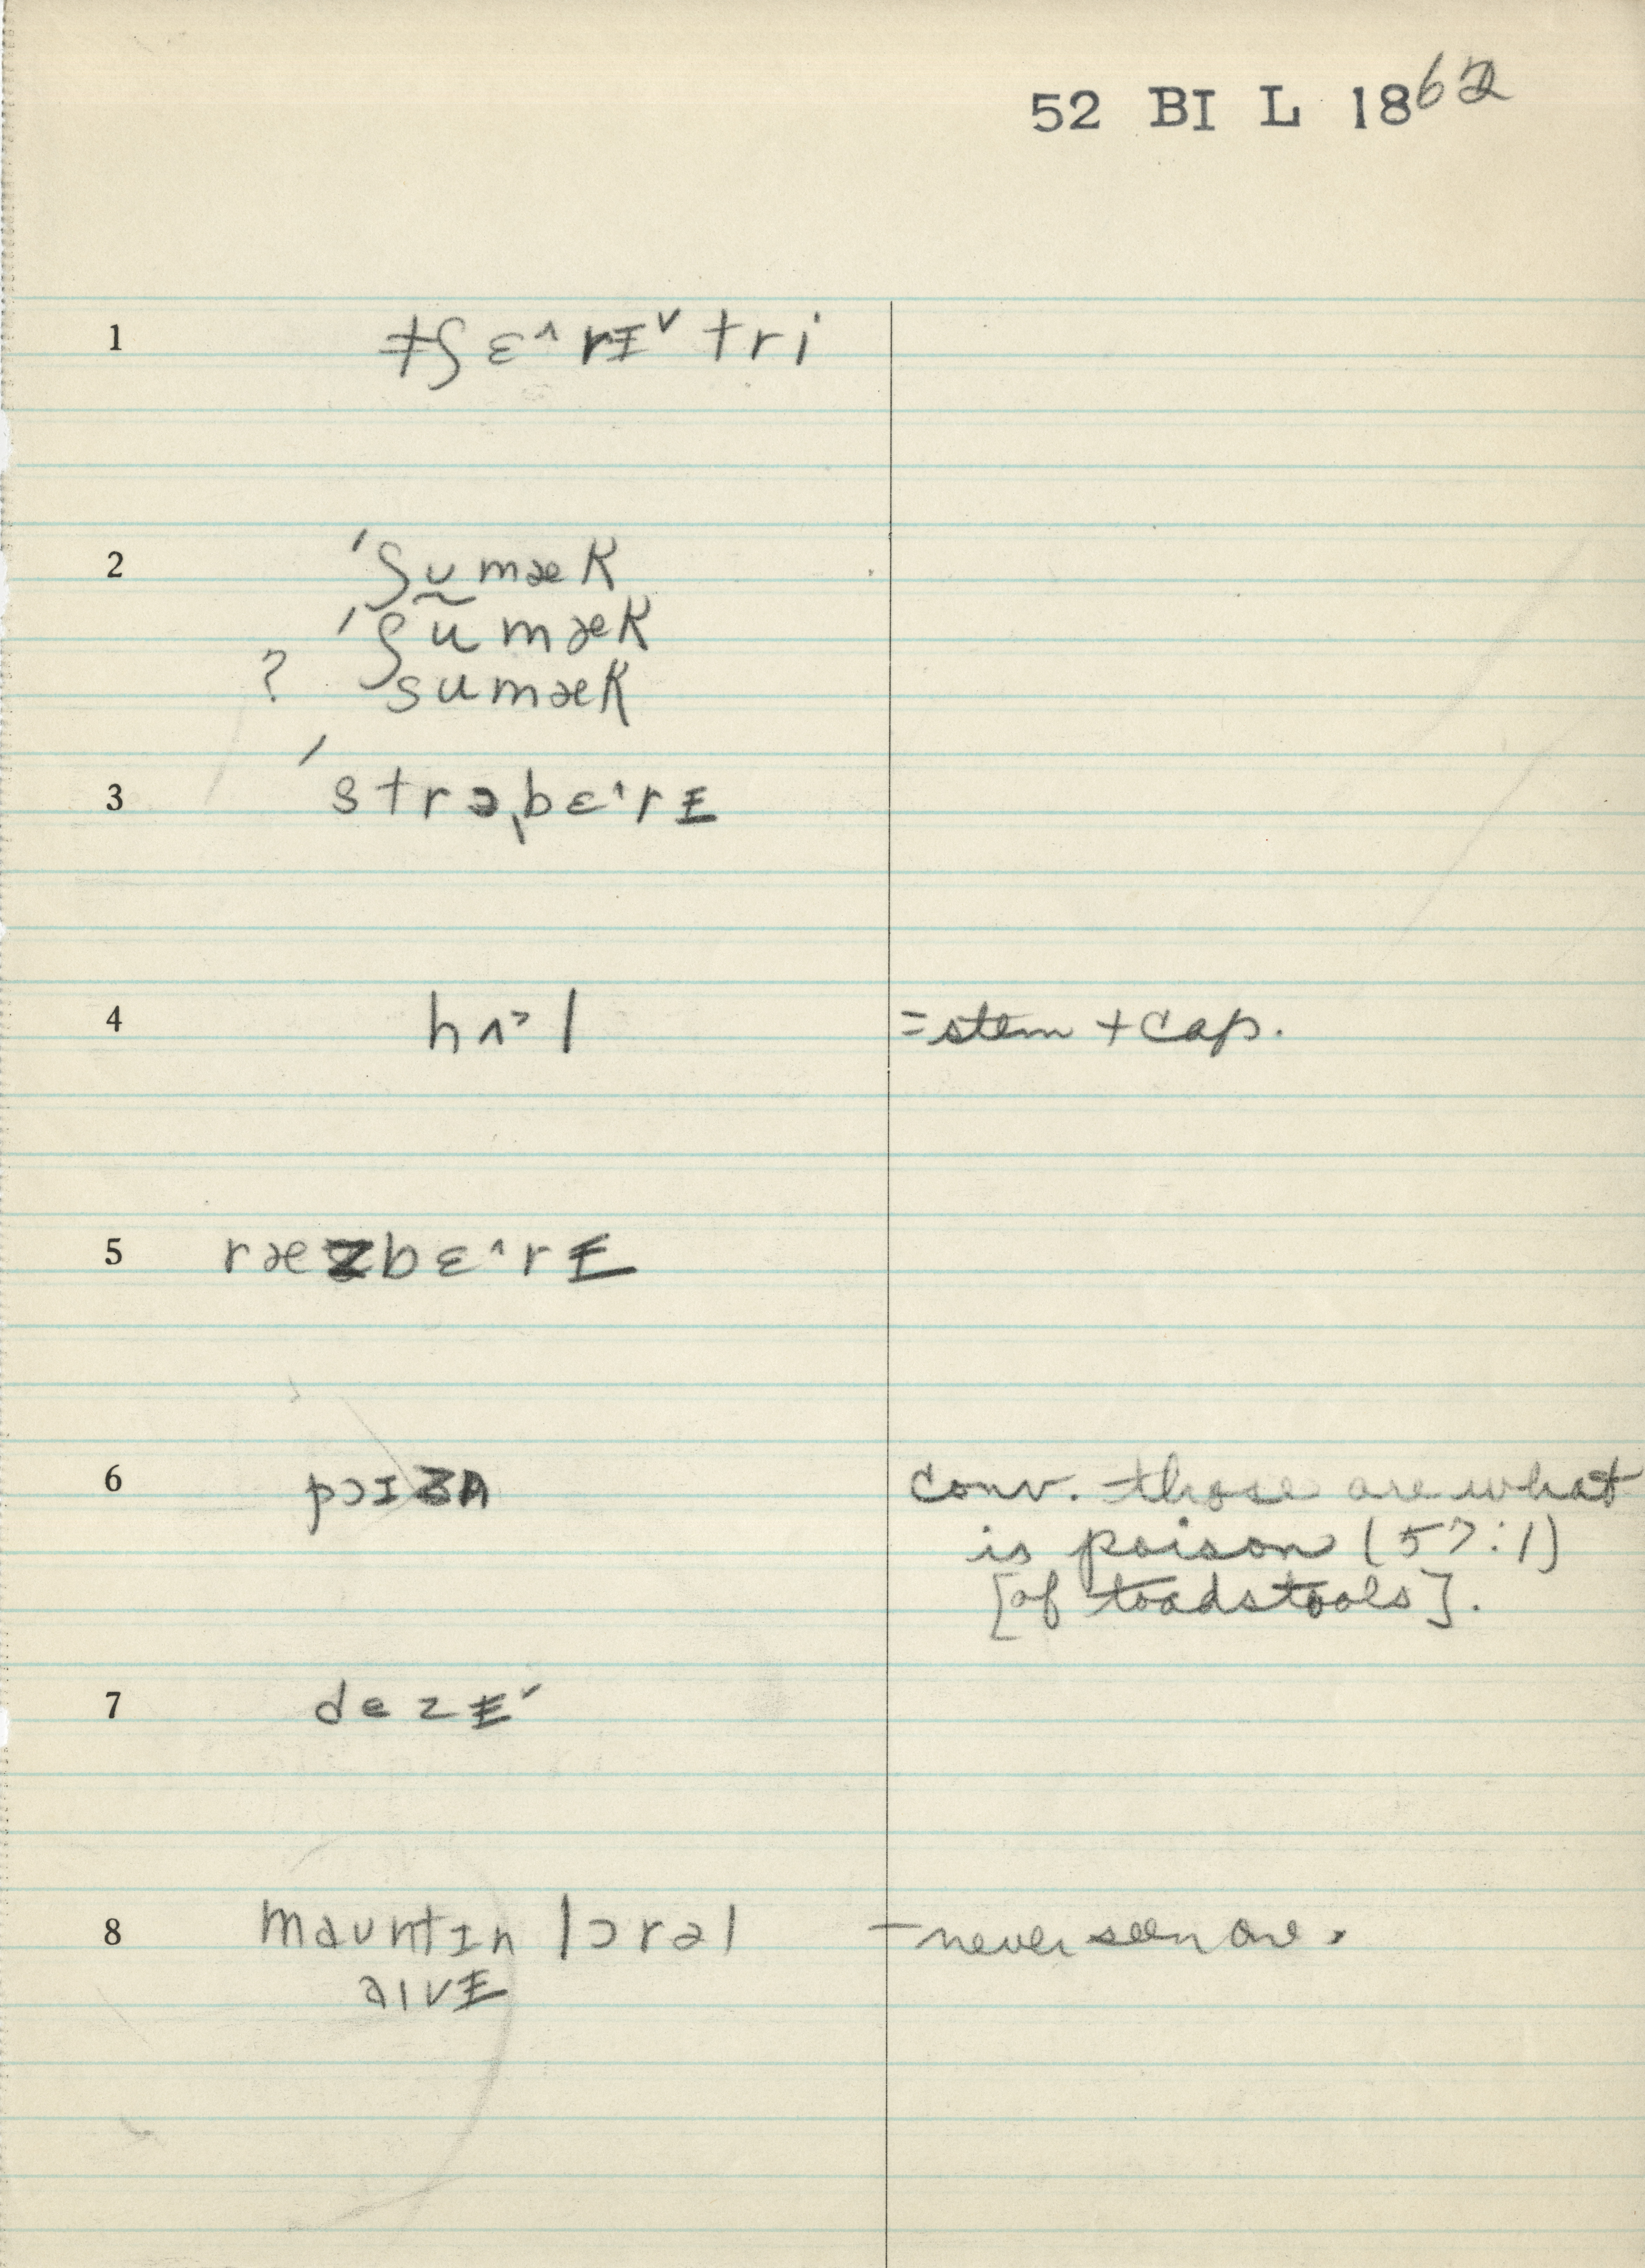 52 BI L 1862
1 tʃɛ˄rɪ˅ tri
2 ˈʃʊ̰mæk
ˈʃumæk
? sumæk
3 ˈstrɔˌbɛ˄rɨ
4 hʌ˃l =stem + cap.
5 ræzbɛ˄rɨ
6 pɔɪzn̩ conv. those are what
is poison (57:1)
[of toadstools].
7 dezɨ˅
8 mauntɪn lɔrəl – never seen one.
aɪvɨ